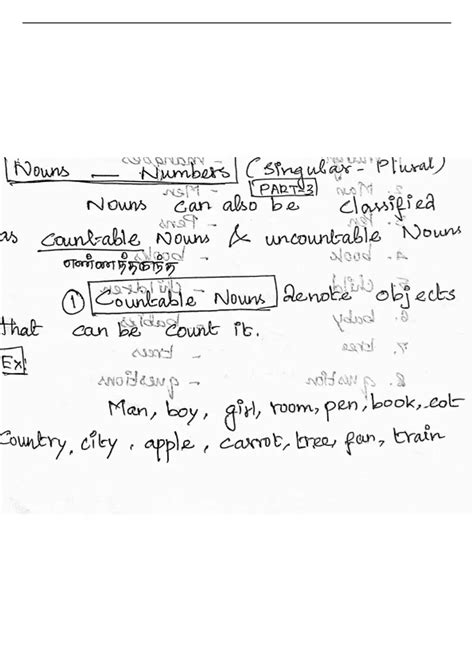 Nouns — Numbers (Singular - Plural)
PART-3
Nouns can also be classified
as countable Nouns & uncountable Nouns
எண்ணத்தகுந்த
① Countable Nouns denote objects
that can be count it.
Ex
Man, boy, girl, room, pen, book, cot
Country, city, apple, carrot, tree, fan, train